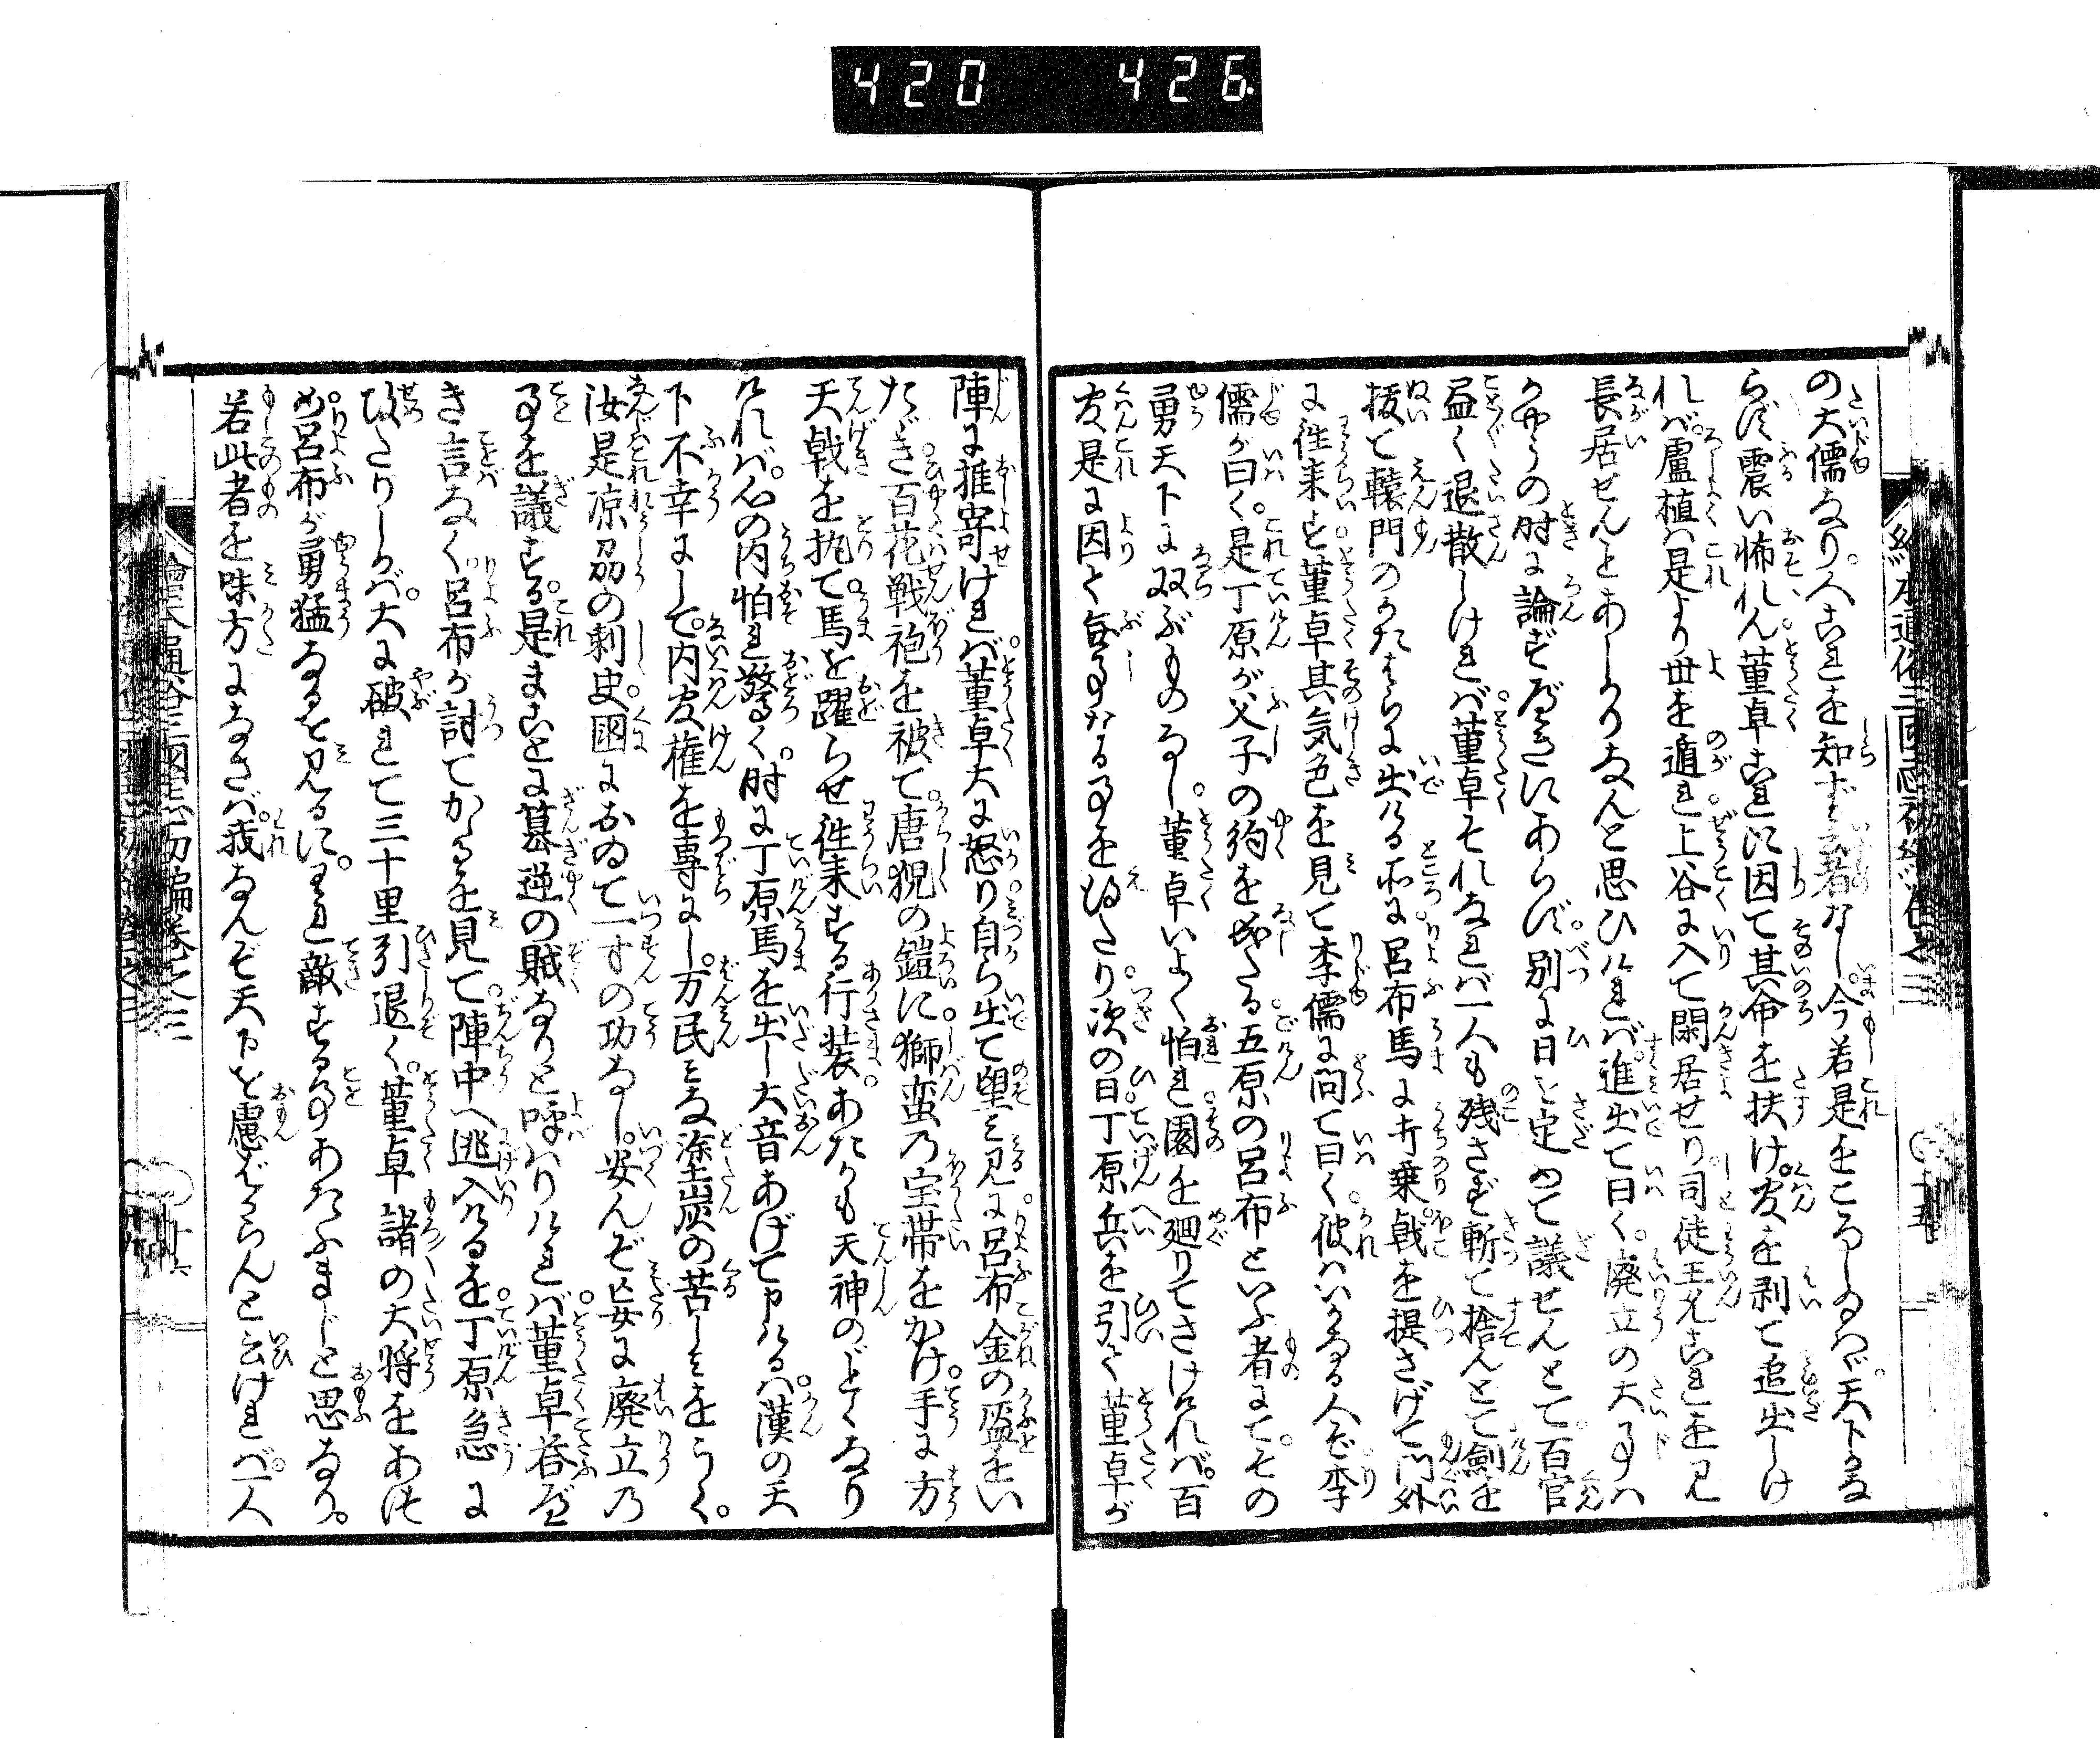 420 426
の大儒なり。人これを知ずといふ者なし。今若是をころし給はゞ。天下かな
らず震い怖れん。董卓これに因て其命を扶け。官を剥て追出しけ
れば。盧植は是より世を遁れ。上谷に入て閑居せり。司徒王允これを見
長居せんとあしかりなんと思ひければ。進出て曰く。廃立の大事は
かやうの時に論ずべきにあらず。別に日を定めて議せんとて。百官
尽く退散しければ。董卓それなれば一人も残さず斬て捨んとて剣を
抜て轅門のかたはらに出ける所に。呂布馬に打乗。戟を提さげて門外
に往来す。董卓其気色を見て李儒に問て曰く。彼はいかなる人ぞ。李
儒が曰く。是丁原が父子の約をなしたる。五原の呂布といふ者にて。その
勇天下に双ぶものなし。董卓いよ〱怕れ。園を廻りてさけければ。百
官是に因て無事なる事を得たり。次の日。丁原兵を引て董卓が
陣に推寄ければ。董卓大に怒り。自ら出て望み見るに。呂布金の盔をい
たゞき。百花戦袍を被て。唐猊の鎧に。獅蛮の宝帯をかけ。手に方
天戟を執て。馬を躍らせ往来する行装。あたかも天神のごとくなり
ければ。心の内怕れ驚く。時に丁原馬を出し大音あげて申けるは。漢の天
下不幸にして。内官権を専にし。万民みな塗炭の苦しみをうく。
汝是凉州の刺史。国において一寸の功なし。安んぞ妄に廃立の
事を議する。是まことに簒逆の賊なりと呼はりければ。董卓答べ
き言なく。呂布が討てかゝるを見て。陣中へ逃入けるを。丁原急に
攻たりしかば。大に破れて三十里引退く。董卓諸の大将をあつ
め。呂布が勇猛なるを見るに。われ敵する事あたふまじと思なり。
若此者を味方になさば。我なんぞ天下を慮ばからんと云ければ。一人